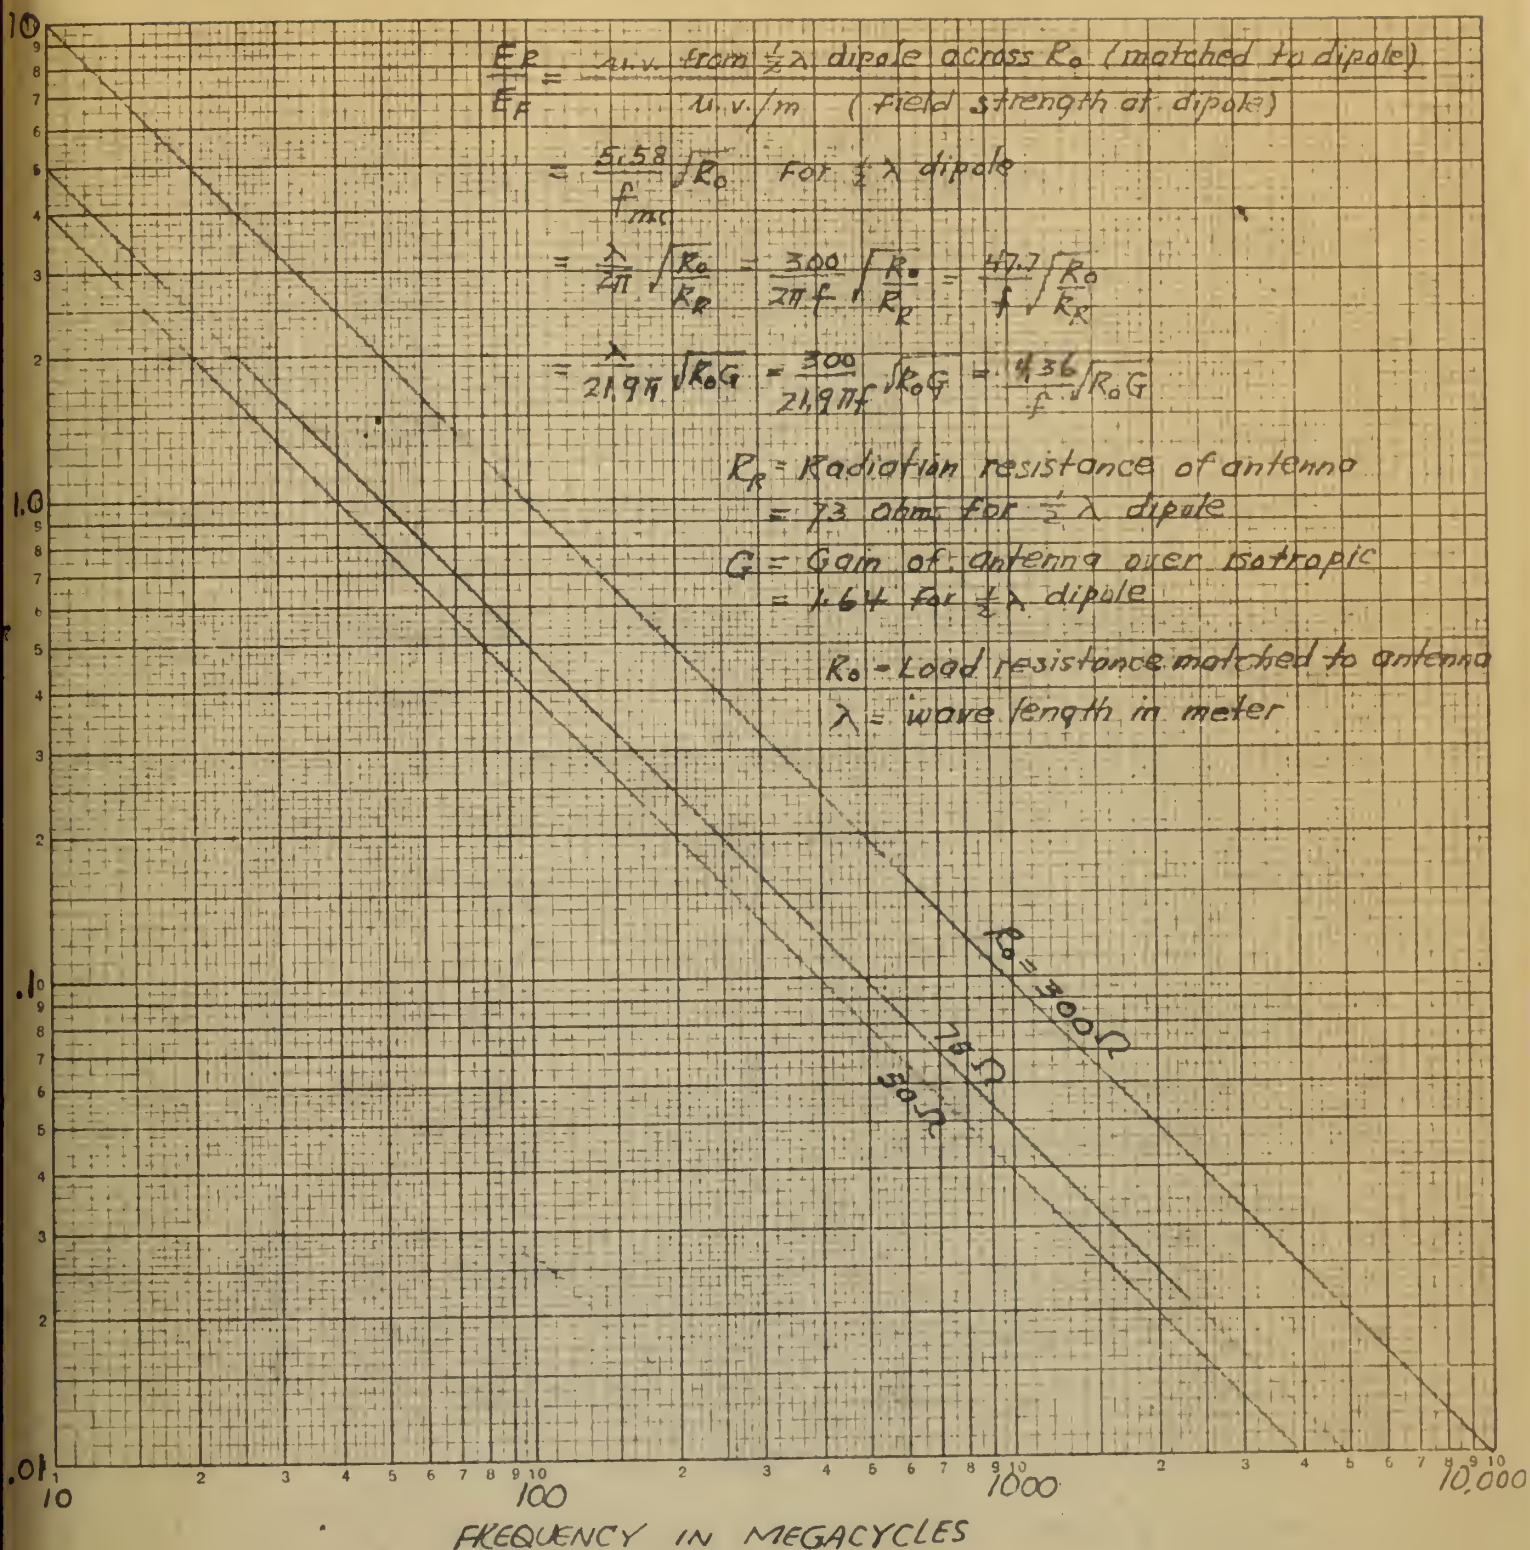 E_R/E_F = u.v. from ½ λ dipole across R₀ (matched to dipole) / u.v./m (field strength at dipole)
= 5.58/f_mc √R₀ For ½ λ dipole
= λ/2π √(R₀/R_R) = 300/2πf √(R₀/R_R) = 47.7/f √(R₀/R_R)
= λ/21.9π √R₀G = 300/21.9πf √R₀G = 4.36/f √R₀G
R_R = Radiation resistance of antenna
= 73 ohms for ½ λ dipole
G = Gain of antenna over isotropic
= 1.64 for ½ λ dipole
R₀ = Load resistance matched to antenna
λ = wave length in meter
10
9
8
7
6
5
4
3
2
1.0
9
8
7
6
5
4
3
2
.10
9
8
7
6
5
4
3
2
.01
R₀ = 300Ω
Ω
50Ω
1 2 3 4 5 6 7 8 9 10 2 3 4 5 6 7 8 9 10 2 3 4 5 6 7 8 9 10
10 100 1000 10,000
FREQUENCY IN MEGACYCLES